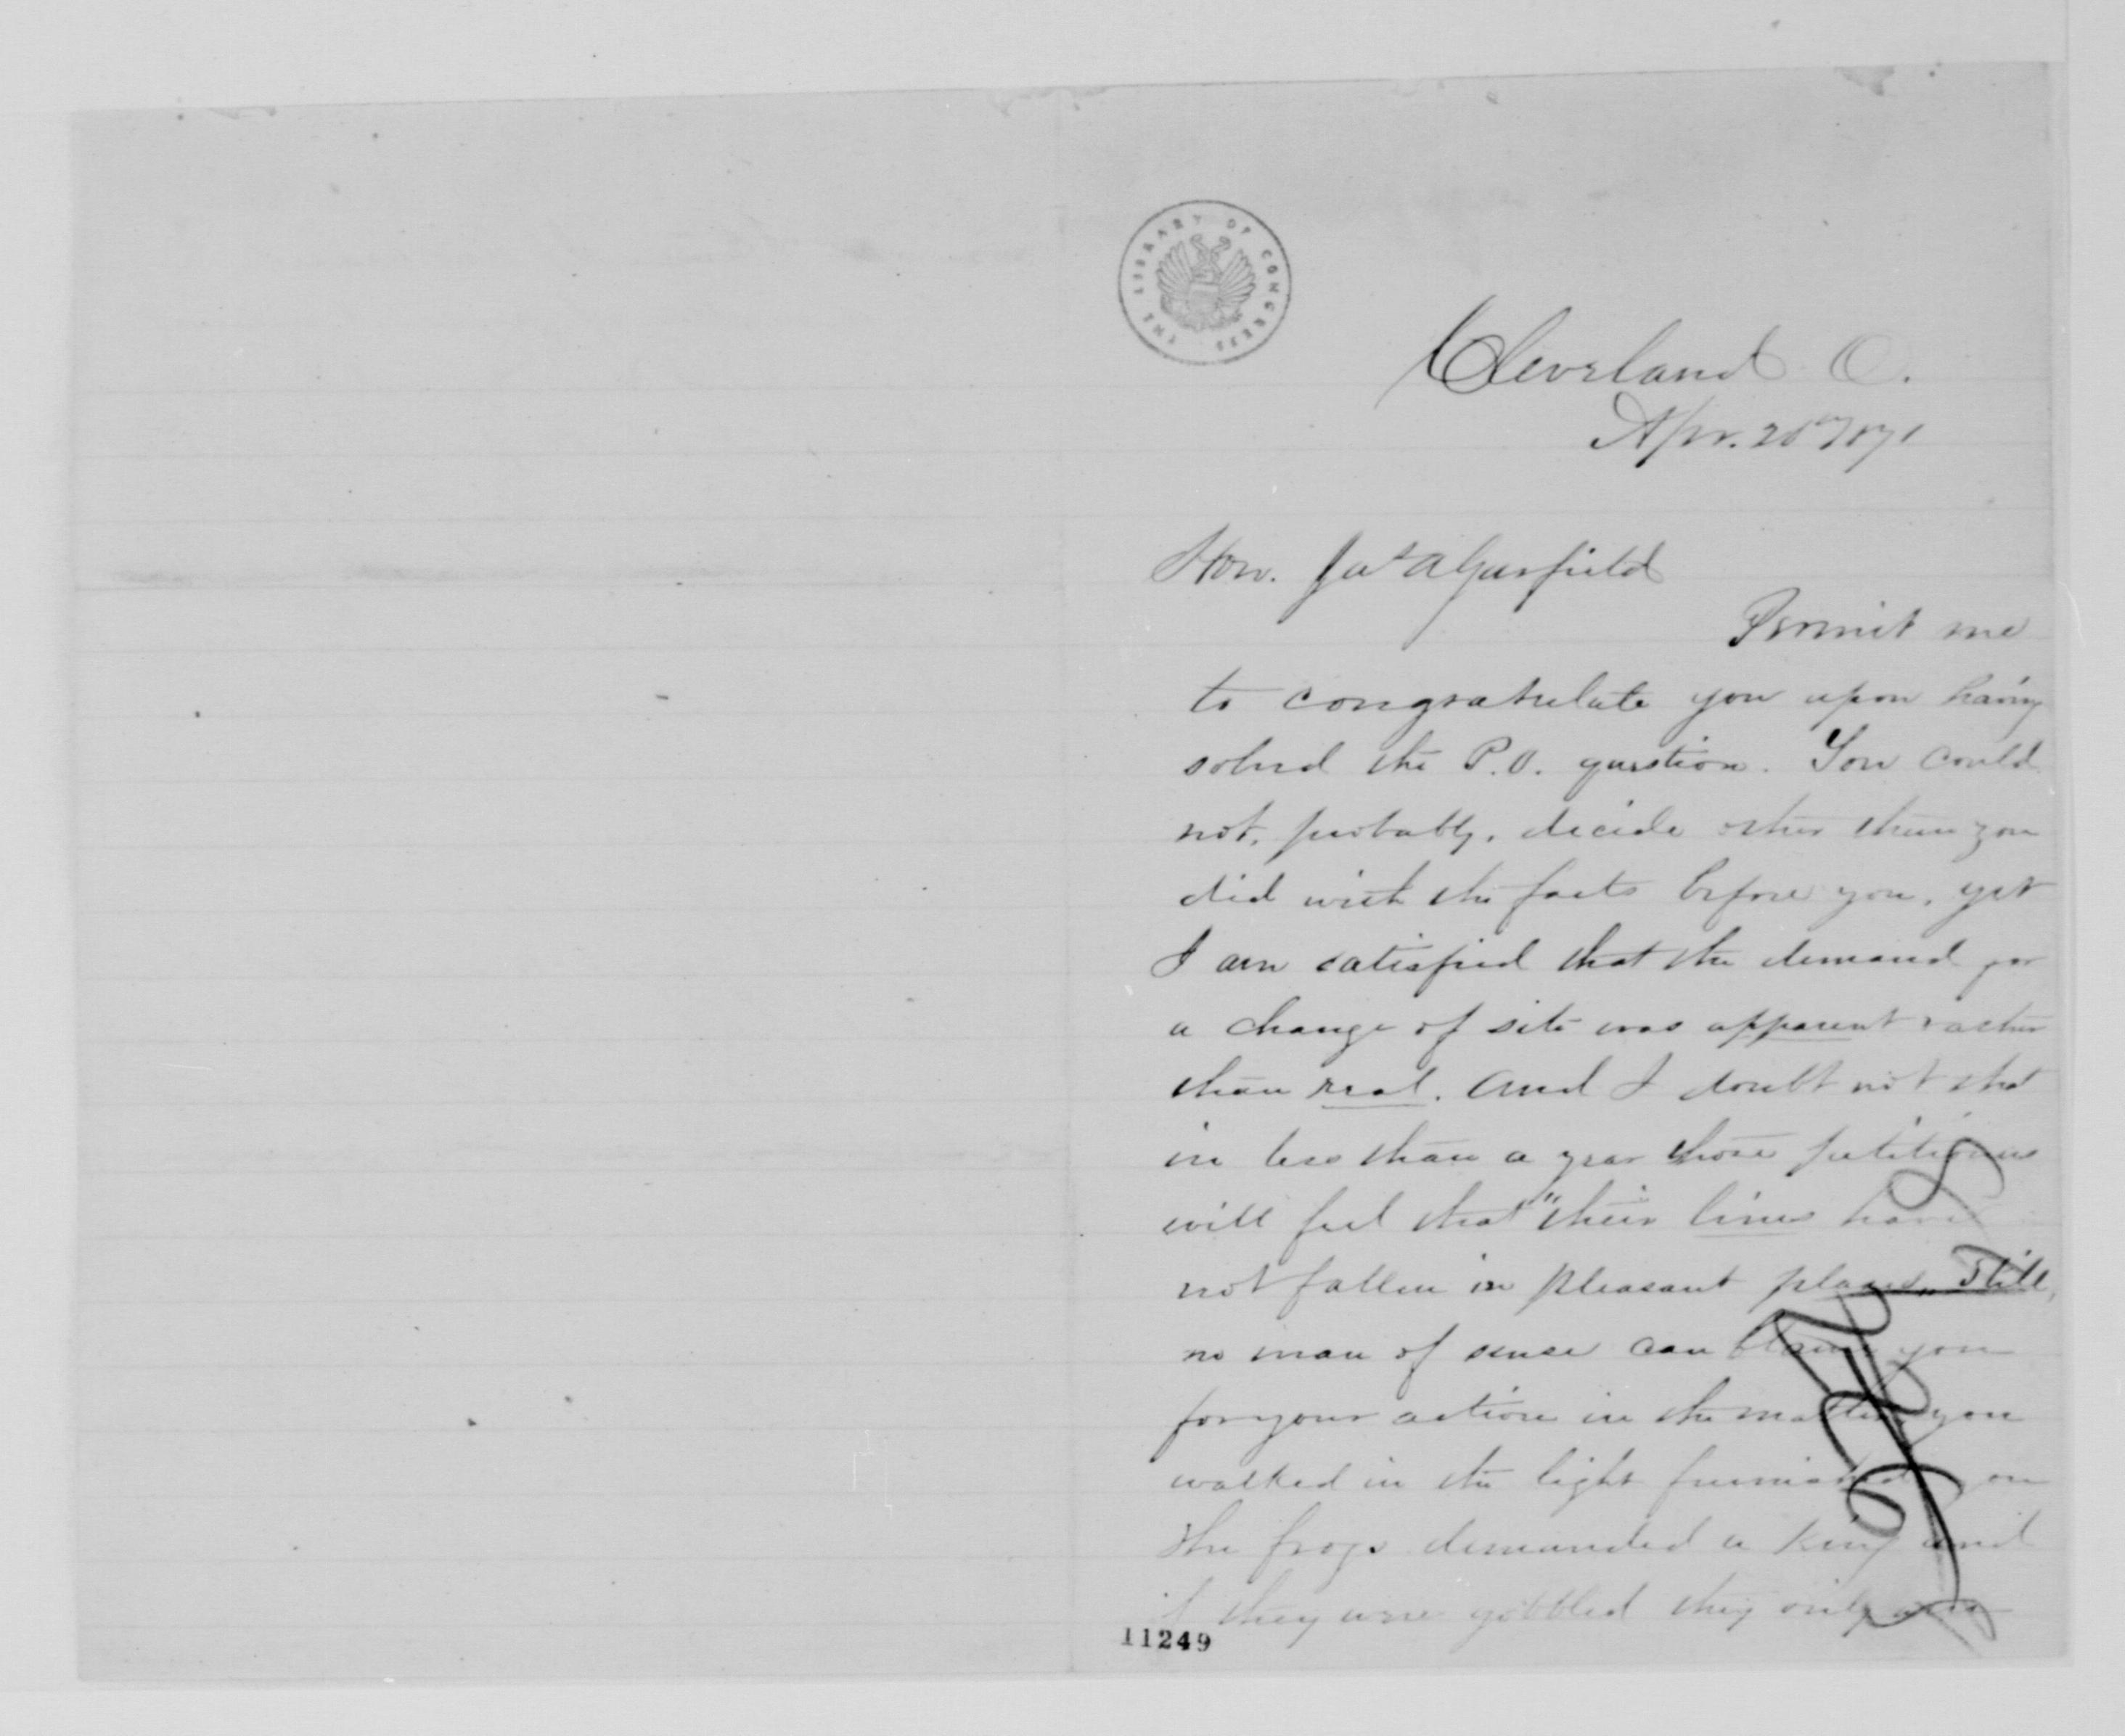 THE LIBRARY OF CONGRESS
Cleveland O.
Apr. 20th 1871
Hon. Jas A Garfield
Permit me
to congratulate you upon having
solved the P.O. question. You could
not, probably, decide other than you
did with the facts before you, yet
I am satisfied that the demand for
a change of site was apparent rather
than real. And I doubt not that
in less than a year those petitioners
will feel that "their lines have
not fallen in pleasant places". Still,
no man of sense can blame you
for your action in the matter, you
walked in the light furnished you
The frogs demanded a King and
if they were gobbled they only
11249